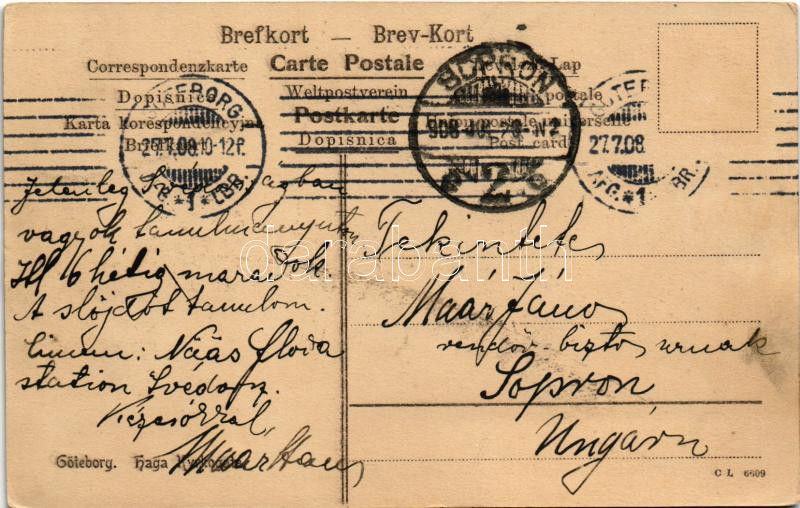 Brefkort — Brev-Kort
Correspondenzkarte Carte Postale Lap
Dopisnice Weltpostverein postale
Karta korespondencyjna Postkarte Union postale universelle
Dopisnica Post card
GÖTEBORG
27.7.08 10-12F.
*1* LBR.
SOPRON
908 JUL 29 N2
GÖTEBORG
27.7.08
AFG. *1* LBR.
Jelenleg Svédországban
vagyok tanulmányúton
Itt 6 hétig maradok.
A slöjdöt tanulom.
Címem: Nääs Floda
station Svédorsz.
Kézcsókkal,
Maár
Tekintetes
Maár János
rendőr-biztos urnak
Sopron
Ungárn
Göteborg. Haga Kyrkogata
C L 6609
darabanth